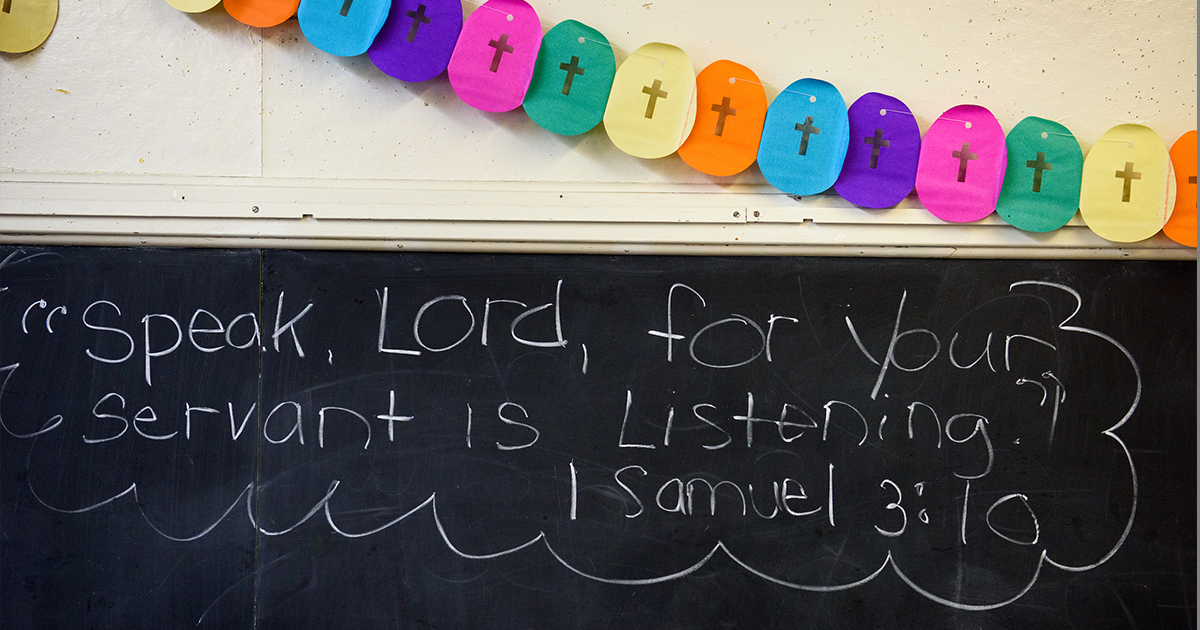 “Speak, Lord, for your
servant is Listening.”
1 Samuel 3:10